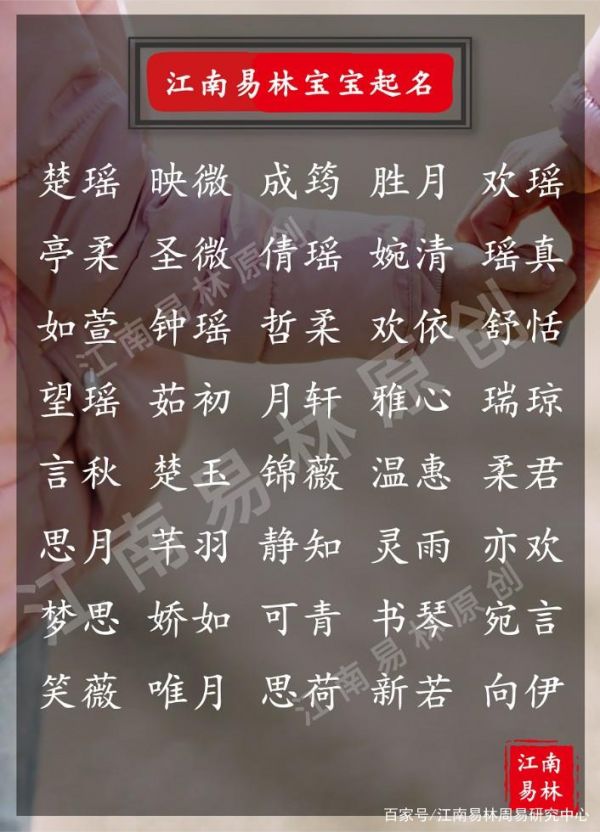 江南易林宝宝起名
楚瑶 映微 成筠 胜月 欢瑶
亭柔 圣微 倩瑶 婉清 瑶真
如萱 钟瑶 哲柔 欢依 舒恬
望瑶 茹初 月轩 雅心 瑞琼
言秋 楚玉 锦薇 温惠 柔君
思月 芊羽 静知 灵雨 亦欢
梦思 娇如 可青 书琴 宛言
笑薇 唯月 思荷 新若 向伊
江南易林原创
江南易林原创
江南易林原创
江南
易林
百家号/江南易林周易研究中心